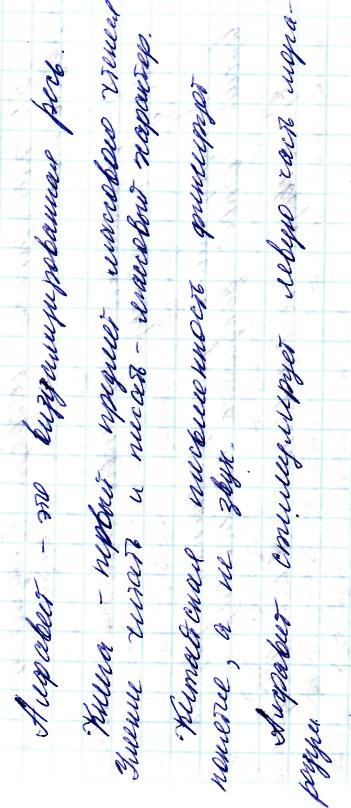 Алфавит - это визуализированная речь.
Книга - первый предмет массового чтения
Умение читать и писать - массовый характер.
Китайская письменность фиксирует
понятие, а не звук.
Алфавит стимулирует левую часть мозга-